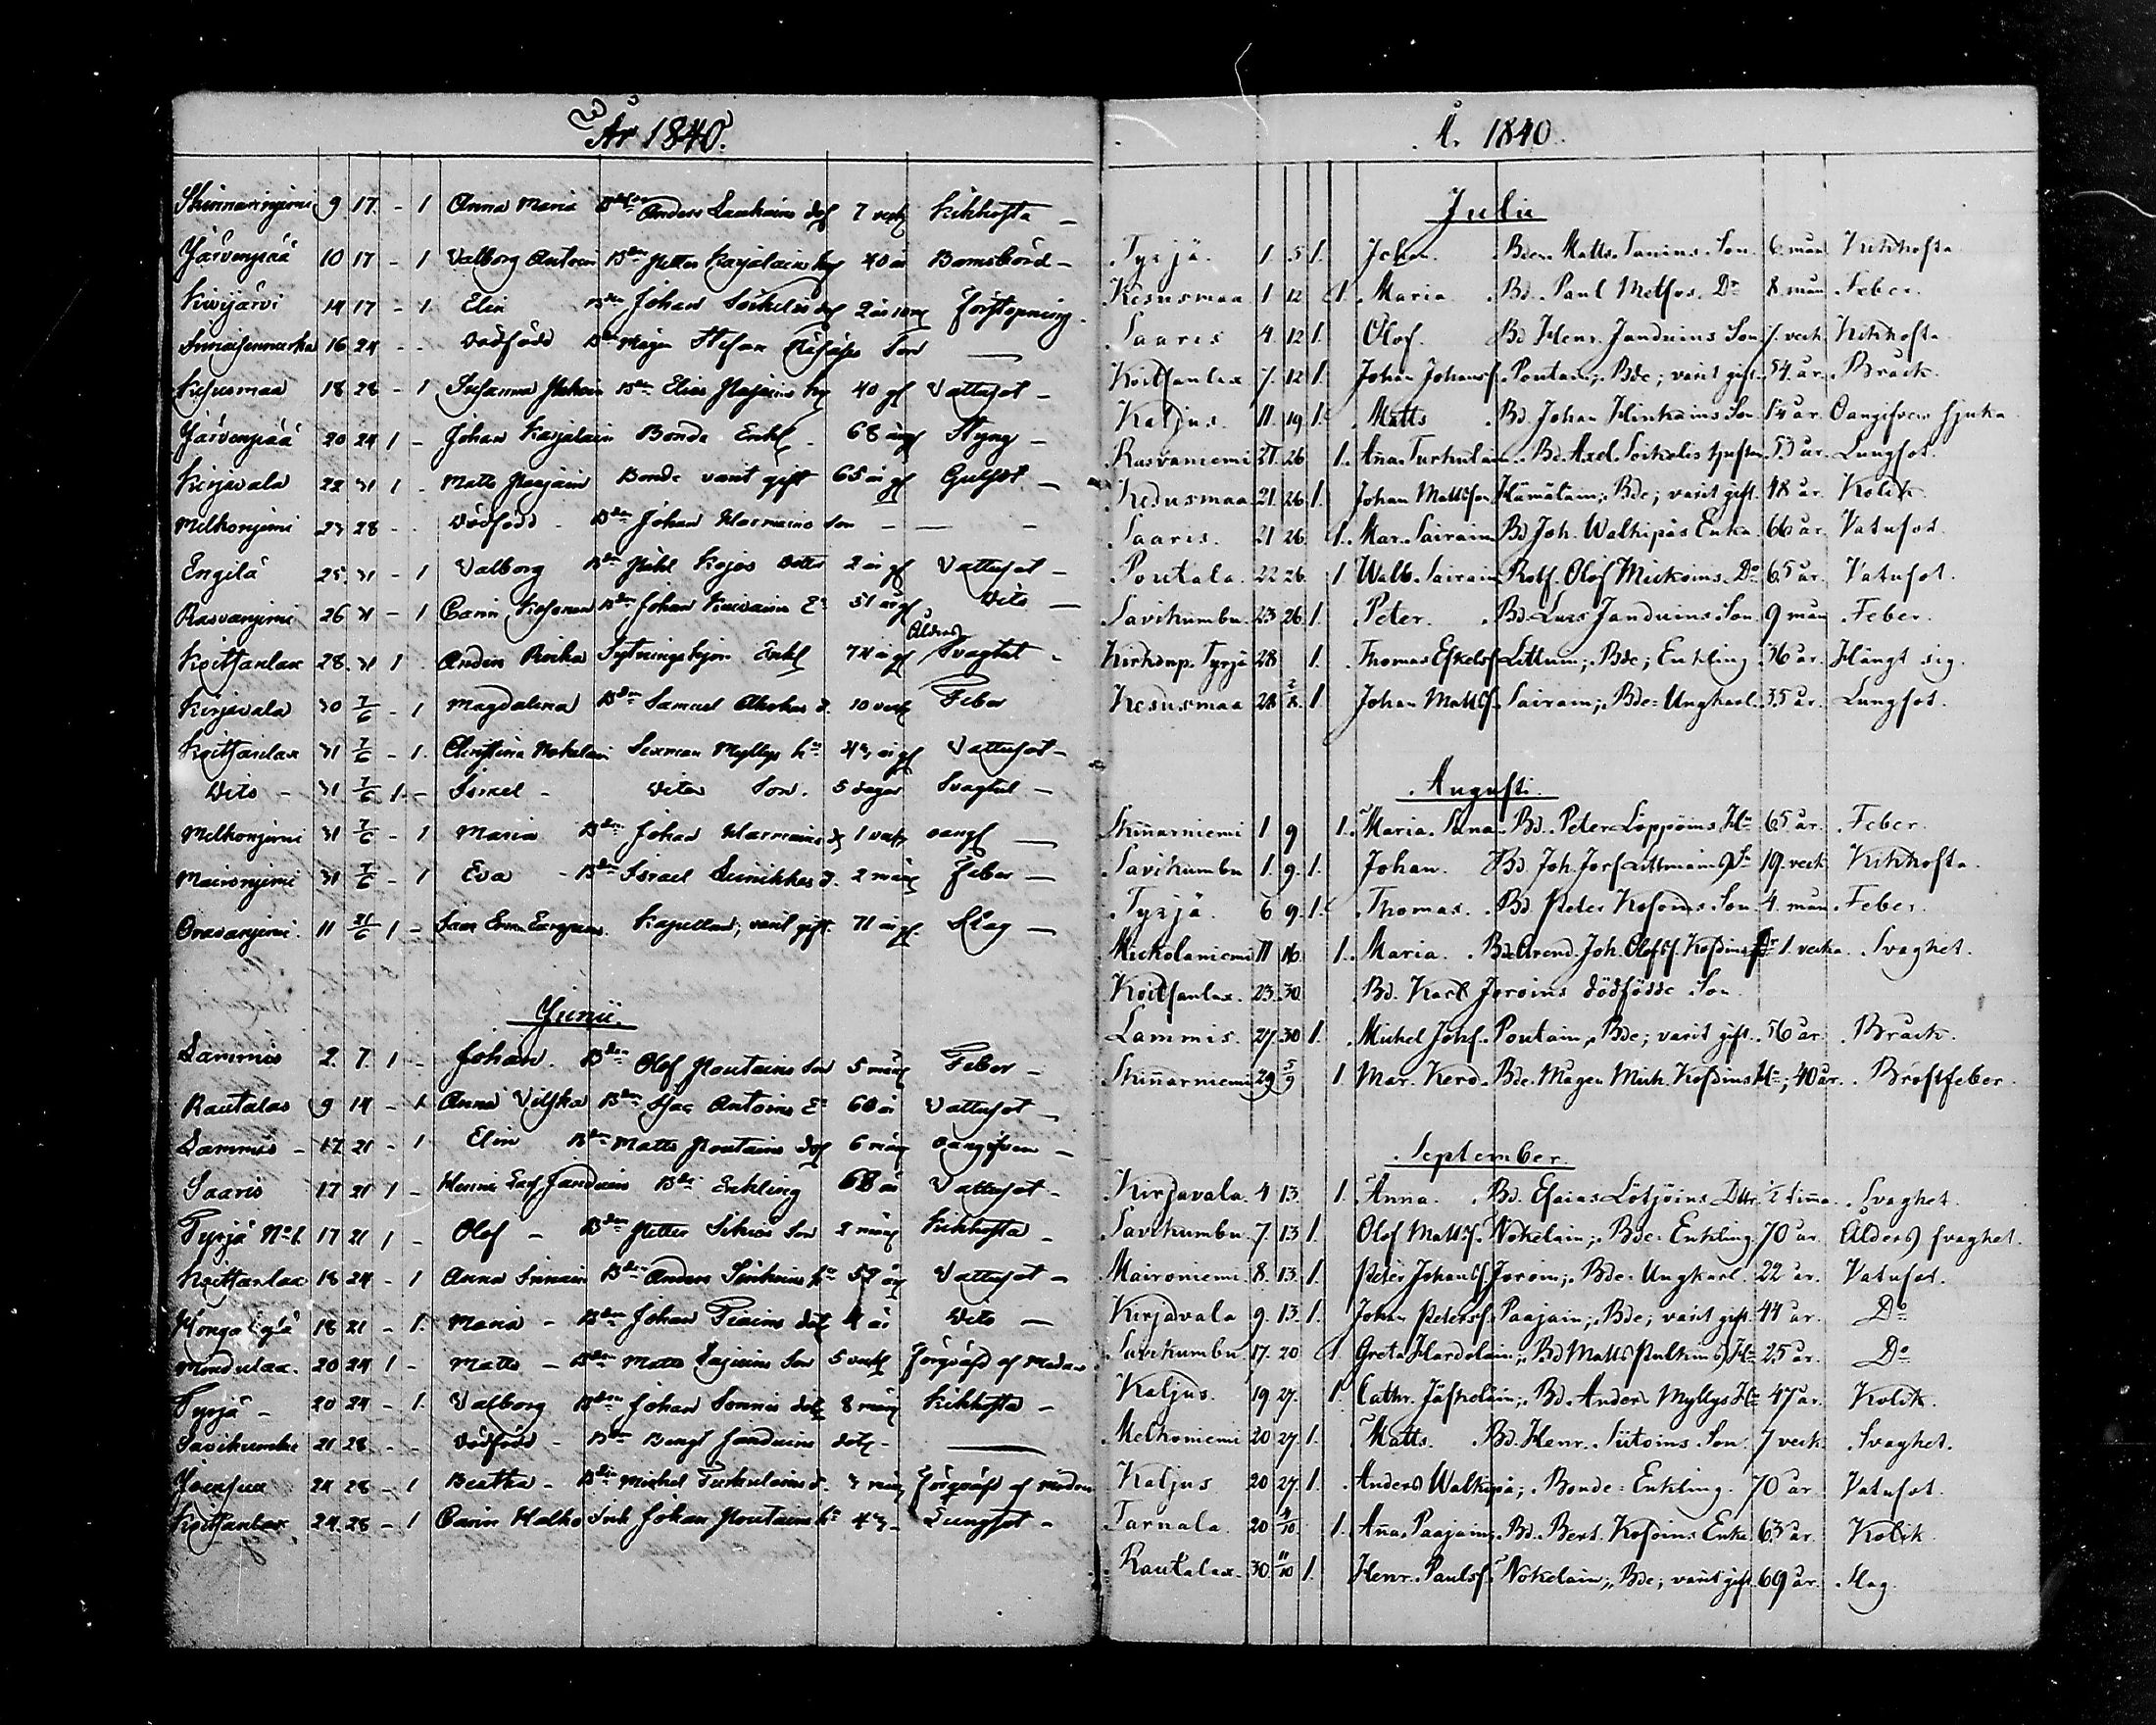 År 1840.
Skinnarinjemi 9 17 - 1 Anna Maria Bdes Anders Laukains dot 7 veck Kikhosta -
Järvenpää 10 17 - 1 Valborg Antoin Bden Petter Karjalains h 40 år Barnsbörd -
Kivijärvi 14 17 - 1 Elin Bden Johan Soikelis dot Förstopning -
16 24 - - Dödfödd Bde Mågen Stefan Son -
Kesusmaa 18 28 - 1 Susanna Bden Elias 40 Vattusot -
Järvenpää 20 24 1 - Johan Karjalain Bonde Enkl 68 Styng -
Kirjavala 22 31 1 - Matts Paajain Bonde varit gift 65 år Gulsot -
Melkonjemi 23 28 - - Dödfödd - Bden Johan Harmains Son - - -
Engilä 25 31 - 1 Valborg Bden Dotter 2 år Vattusot -
Rasvanjemi 26 31 - 1 Carin Bden Johan E 51 år Dito -
Koitsanlax 28 31 1 - Anders Sytningshjon Enkl 74 år Ålders Svaghet -
Kirjavala 30 7/6 - 1 Magdalena Bden Samuel d. 10 veck Feber
Koitsanlax 31 7/6 - 1 Christina Nokelain Myllys h 43 år Vattusot -
Dito - 31 7/6 1 - Israel - Ditos Son. 5 dagar Svaghet -
Melkonjemi 31 7/6 - 1 Maria Bden Johan Harmains d 1 veck oangf -
Maironjemi 31 7/6 - 1 Eva - Bden Israel d. 2 mån Feber -
Oravanjemi 11 21/6 1 - Kapellan, varit gift 71 år Slag -
Junii.
Lammis 2. 7. 1 - Johan. Bden Olof Poutains Son 5 mån Feber -
Rautalax 9 14 - 1 Anna Bden Isac Antoins E 60 år Vattusot -
Lammis - 17 21 - 1 Elin Bden Matts Poutains dot 6 mån oangifven -
Saaris 17 21 1 - Janduin Bde Enkling 68 år Vattusot -
Tyrjä No 1. 17 21 1 - Olof - Bden Petter Son 2 mån Kikhosta -
Koitsanlax 18 24 - 1 Anna Bden Anders h 59 år Vattusot -
18 21 - 1. Maria - Bden Johan dot 4 år Dito -
20 24 1 - Matts - Bden Matts Son 5 veck förqväfd af Modren
Tyrjä - 20 24 - 1. Valborg Bden Johan Somnis dot 8 mån Kikhosta -
Savikumbu 21 28 - - Dödfödd - Bden Bengt Janduins dot -
24 28 - 1 Beatha - Bden Michel Turkulains d. 3 mån förqväfd af modren
Koitsanlax 24 28 - 1 Carin Inh Johan Poutains h 43 - Lungsot -
Å. 1840.
Julii
Tyrjä. 1. 5 1. Johan. Bden. Matts. Tanins. Son. 6 mån Kikhosta
Kesusmaa 1 12 1. Maria. Bd. Paul Dr 8. mån Feber.
Saaris 4. 12 1. Olof. Bd Henr. Janduins Son 7. veck Kikhosta
Koitsanlax 7. 12 1. Johan Johansf. Poutain; Bde; varit gift 54. år. Bråck.
Kaljus. 11 19 1. Matts Bd. Johan Hinkains Son 14 år Oangifven sjuka
Rasvaniemi 21. 26 1. Aña. Turkulain Bd. Axel. Soikelis hustru 53 år. Lungsot.
Kesusmaa 21. 26 1. Johan Mattson Hämäläin; Bde; varit gift. 48 år. Kolik.
Saaris. 21 26. 1. Mar. Sairain Bd Joh. Walkipäs Enka. 66 år. Vatusot.
Poutala. 22 26. 1. Walb. Sairain Rotf. Olof Mickoins. Dr 65 år. Vatusot.
Savikumbu. 23 26 1. Peter. Bd. Lars Janduins Son 9 mån Feber.
Kirkonp. Tyrjä 28 1. Thomas Eskelsf Littuin; Bde; Enkling 36 år. Hängt sig.
Kesusmaa 28 2/8 1. Johan Mattsf. Sairain; Bde-Ungkarl. 35 år. Lungsot.
Augusti.
Skiñarniemi 1 9 1. Maria Bd. Peter Löppöins H 65 år. Feber.
Savikumbu 1. 9. 1. Johan. Bd. Joh. Jorf Littmains Sn 19. veck Kikhosta.
Tyrjä 6 9. 1. Thomas. Bd. Peter Kosoins Son 4. mån Feber.
Mickolaniemi 11 16. 1. Maria. Bde Arend. Joh. Olofsf. Kosoins Dr 1. vecka Svaghet.
Koitsanlax. 23. 30 Bd. Karl Joroins dödfödde Son
Lammis. 27. 30 1. Michel Johf. Poutain, Bde; varit gift. 56 år Bråck.
Skiñarniemi 29 5/9 1. Mar. Kero. Bde. Mågen Mich. Kosoins H; 40 år. Bröstfeber.
September.
Kirjavala. 4 13. 1. Anna. Bd. Esaias Lötjöins Dttr 1/2 tiña Svaghet.
Savikumbu. 7. 13 1. Olof Mattsf. Nokelain; Bde. Enkling. 70 år Ålders svaghet.
Maironiemi. 8. 13. 1. Peter Johansf. Joroin; Bde. Ungkarl. 22 år. Vatusot.
Kirjavala 9. 13. 1. Johan Petersf. Paajain; Bde; varit gift. 44 år. Do
Savikumbu. 17. 20 1. Greta Bd Matts Pulkins H 25 år. Do
Kaljus. 19 27. 1. Cathr. Jäskeläin; Bd. Anders Myllys H 47 år. Kolik.
Melkoniemi 20 27. 1. Matts. Bd. Henr. Siitoins Son. 7 veck. Svaghet.
Kaljus 20 27. 1. Anders Walkipä; Bonde-Enkling. 70 år Vatusot.
Tarnala. 20 4/10 1. Aña Paajain; Bd. Bert. Kosoins Enka 63 år Kolik.
Rautalax. 30. 11/10 1. Henr. Paulsf. Nokelain; Bde; varit gift. 69 år. Slag.